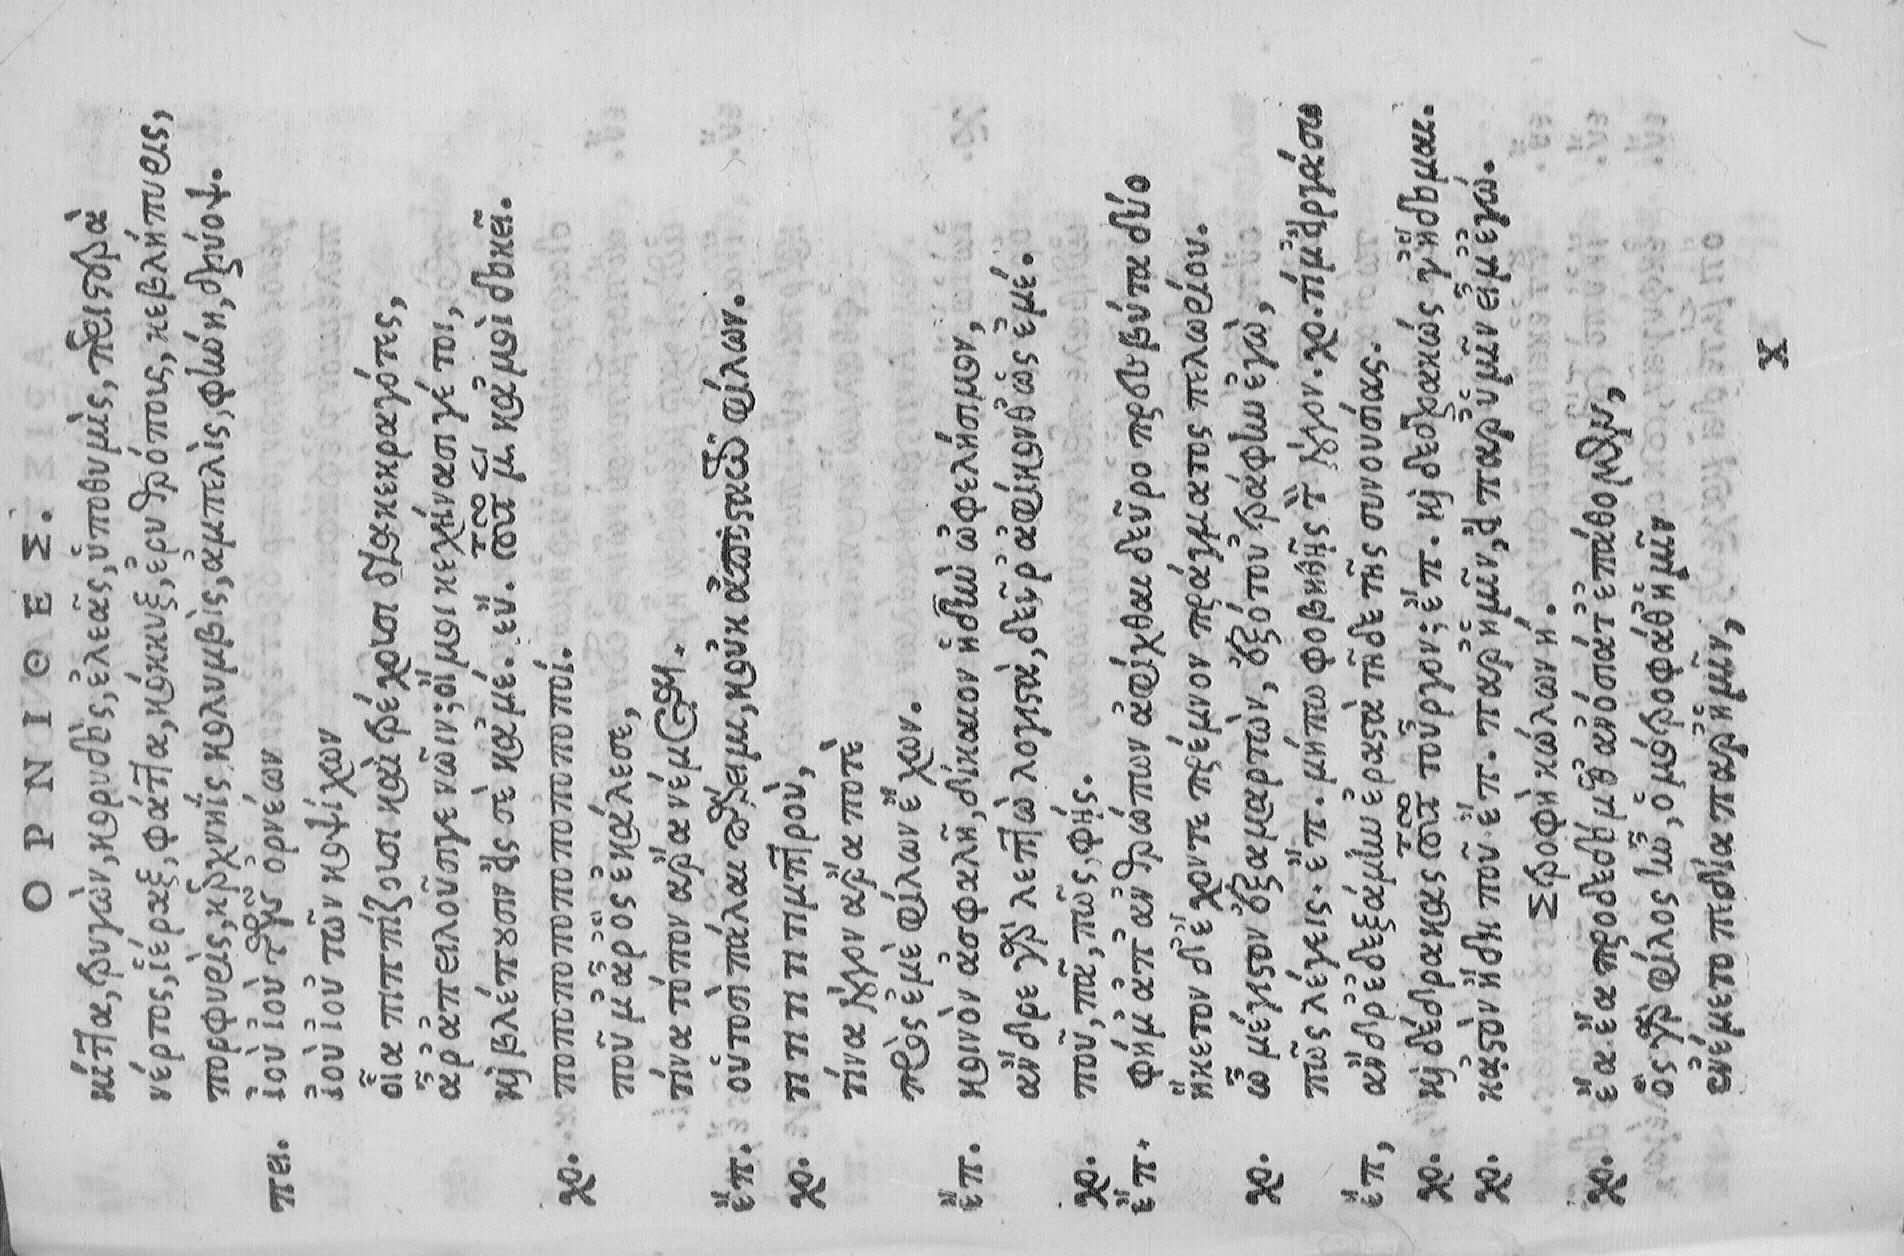 ΟΡΝΙΘΕΣ.
κίττα, τρυγὼν, κορυδὸς, ἐλεᾶς, ὑποθυμὶς, περιστερὰ
νέρτος, ἱέραξ, φάττα, κόκκυξ, ἐρυθρόπους, κεβλήπυρις,
πορφυρὶς, κερχνηῒς, κολυμβὶς, ἀμπελὶς, φήνη, δρύοψ.
πει. ἰοὺ ἰοὺ τῶν ὀρνέων
ἰοὺ ἰοὺ τῶν κοψίχων
οἷα πιππίζουσι καὶ τρέχουσι διακεκραγότες,
ἆρ' ἀπειλοῦσί γε νῶϊν; οἴμοι κεχήνασί γέ τοι,
καὶ βλέπουσιν εἰς σὲ κἀμέ. εὐ. τοῦτο μὲν κἀμοὶ δοκεῖ.
χο. ποποποποποποποποποί.
ποῦ μ' ἄρ' ὃς ἐκάλεσε,
τίνα τόπον ἄρα νέμεται.
ἔπ. οὑτοσὶ πάλαι πάρειμι, κοὐκ ἀποστατῶ φίλων.
χο. τι τι τι τιμπροὺ,
τίνα λόγον ἄρα ποτὲ
πρὸς ἐμὲ φίλων ἔχων.
ἔπ. κοινὸν ἀσφαλῆ, δίκαιον ἡδὺν ὠφελήσιμον,
ἄνδρε γὰρ λεπτὼ λογιστὰ, δεῦρ' ἀφίκονθ' ὡς ἐμέ.
χο. ποῦ, πᾶ, πῶς φής.
ἔπ. φήμ' ἀπ' ἀνθρώπων ἀφίχθαι δεῦρο πρεσβύτα δύο
ἥκετον δ' ἔχοντε πρέμνον πράγματος πελωρίου.
χο. ὦ μέγιστον ἐξαμαρτὼν, ἐξότου τράφην ἐγὼ,
πῶς λέγεις. ἔπ. μήπω φοβηθῇς τὸν λόγον. χο. τί μ' εἰργάσω
ἔπ, ἄνδρ' ἐδεξάμην ἐραστὰ τῆσδε τῆς συνουσίας.
χο. καὶ δέδρακας τοῦτο τοὖργον; ἔπ. καὶ δεδρακώς γ' ἥδομαι.
χο. κἀστὸν ἤδη που. ἔπ. παρ' ἡμῖν, εἰ παρ' ὑμῖν εἴμ' ἐγώ.
Στροφὴ κώλων ή.
χο. ἔα ἔα προδεδόμεθ' ἀνόσιά τ' ἐπάθομεν,
ὃς γὰρ φίλος ἦν, ὁμότροφά θ' ἡμῖν
ἐνέμετο πεδία παρ' ἡμῖν,
X